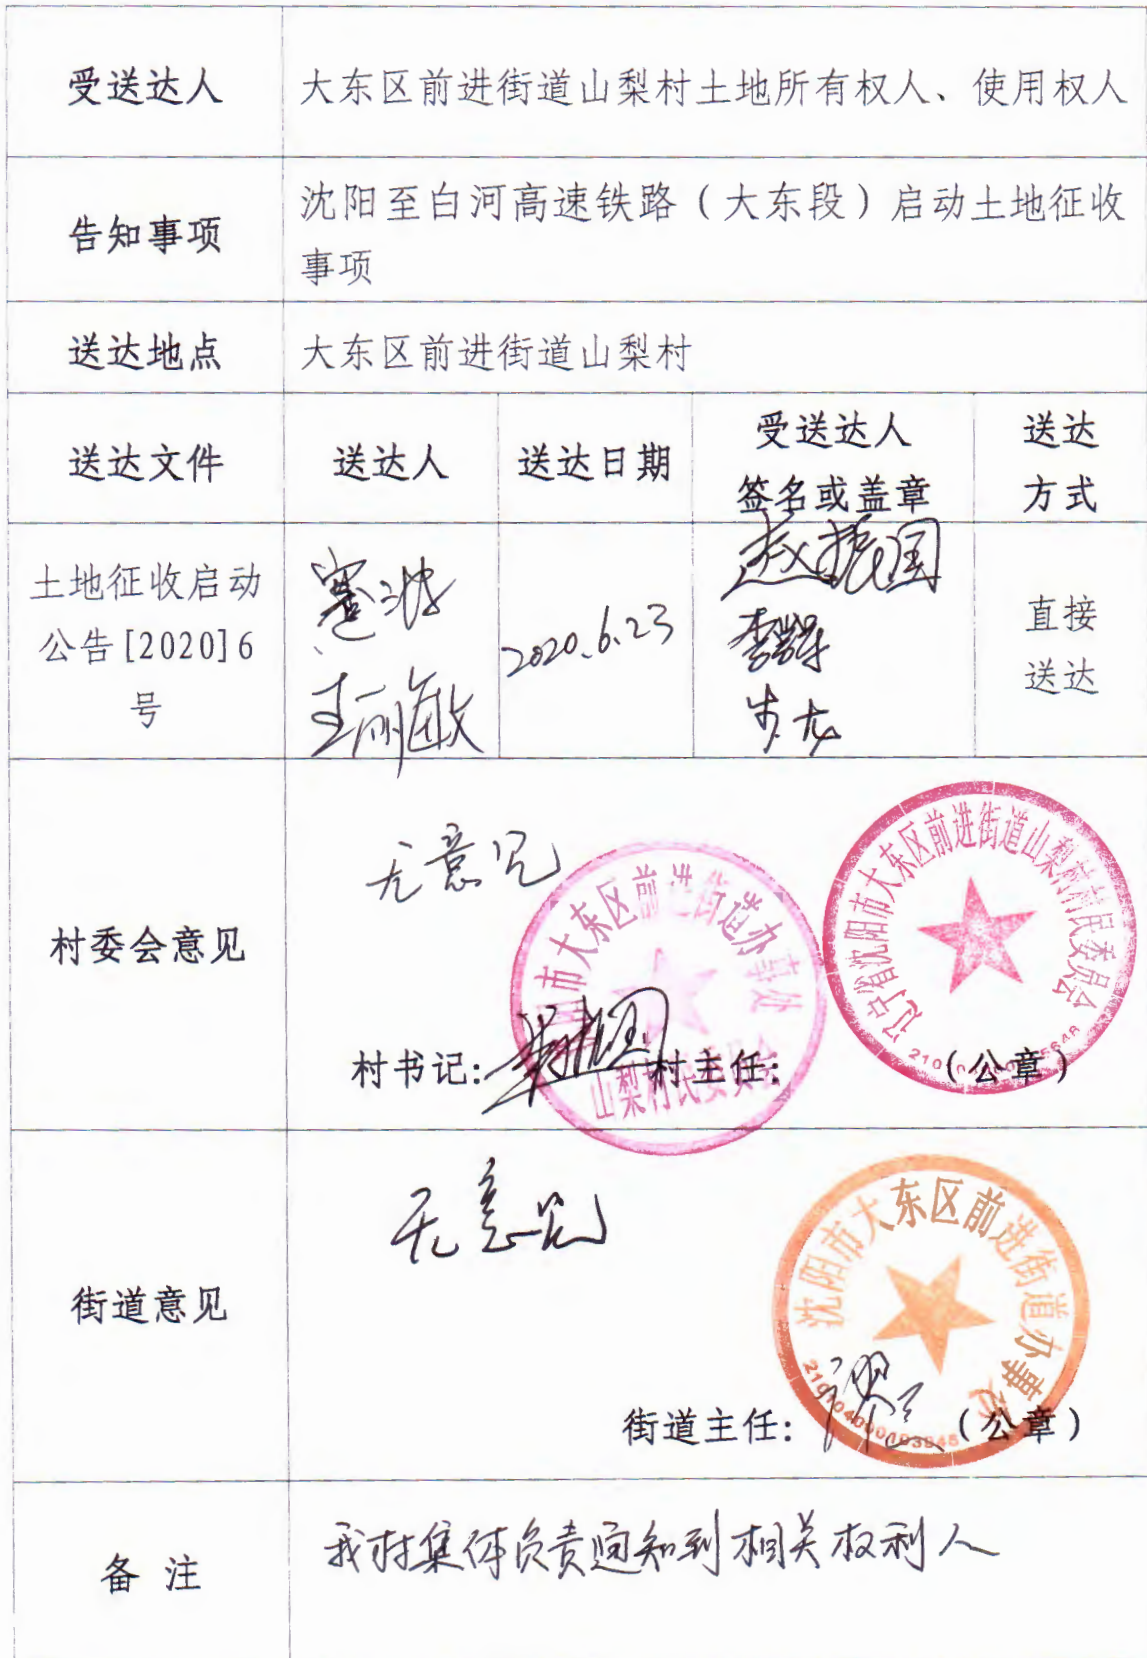 受送达人
大东区前进街道山梨村土地所有权人、使用权人
告知事项
沈阳至白河高速铁路（大东段）启动土地征收
事项
送达地点
大东区前进街道山梨村
送达文件
送达人
送达日期
受送达人
签名或盖章
送达
方式
土地征收启动
公告[2020]6
号
王丽敏
2020.6.23
赵振国
直接
送达
村委会意见
无意见
市大东区前进街道办事处
山梨村民委员会
辽宁省沈阳市大东区前进街道山梨村村民委员会
村书记：
村主任：
（公章）
街道意见
无意见
沈阳市大东区前进街道办事处
街道主任：
（公章）
备 注
我村集体负责通知到相关权利人